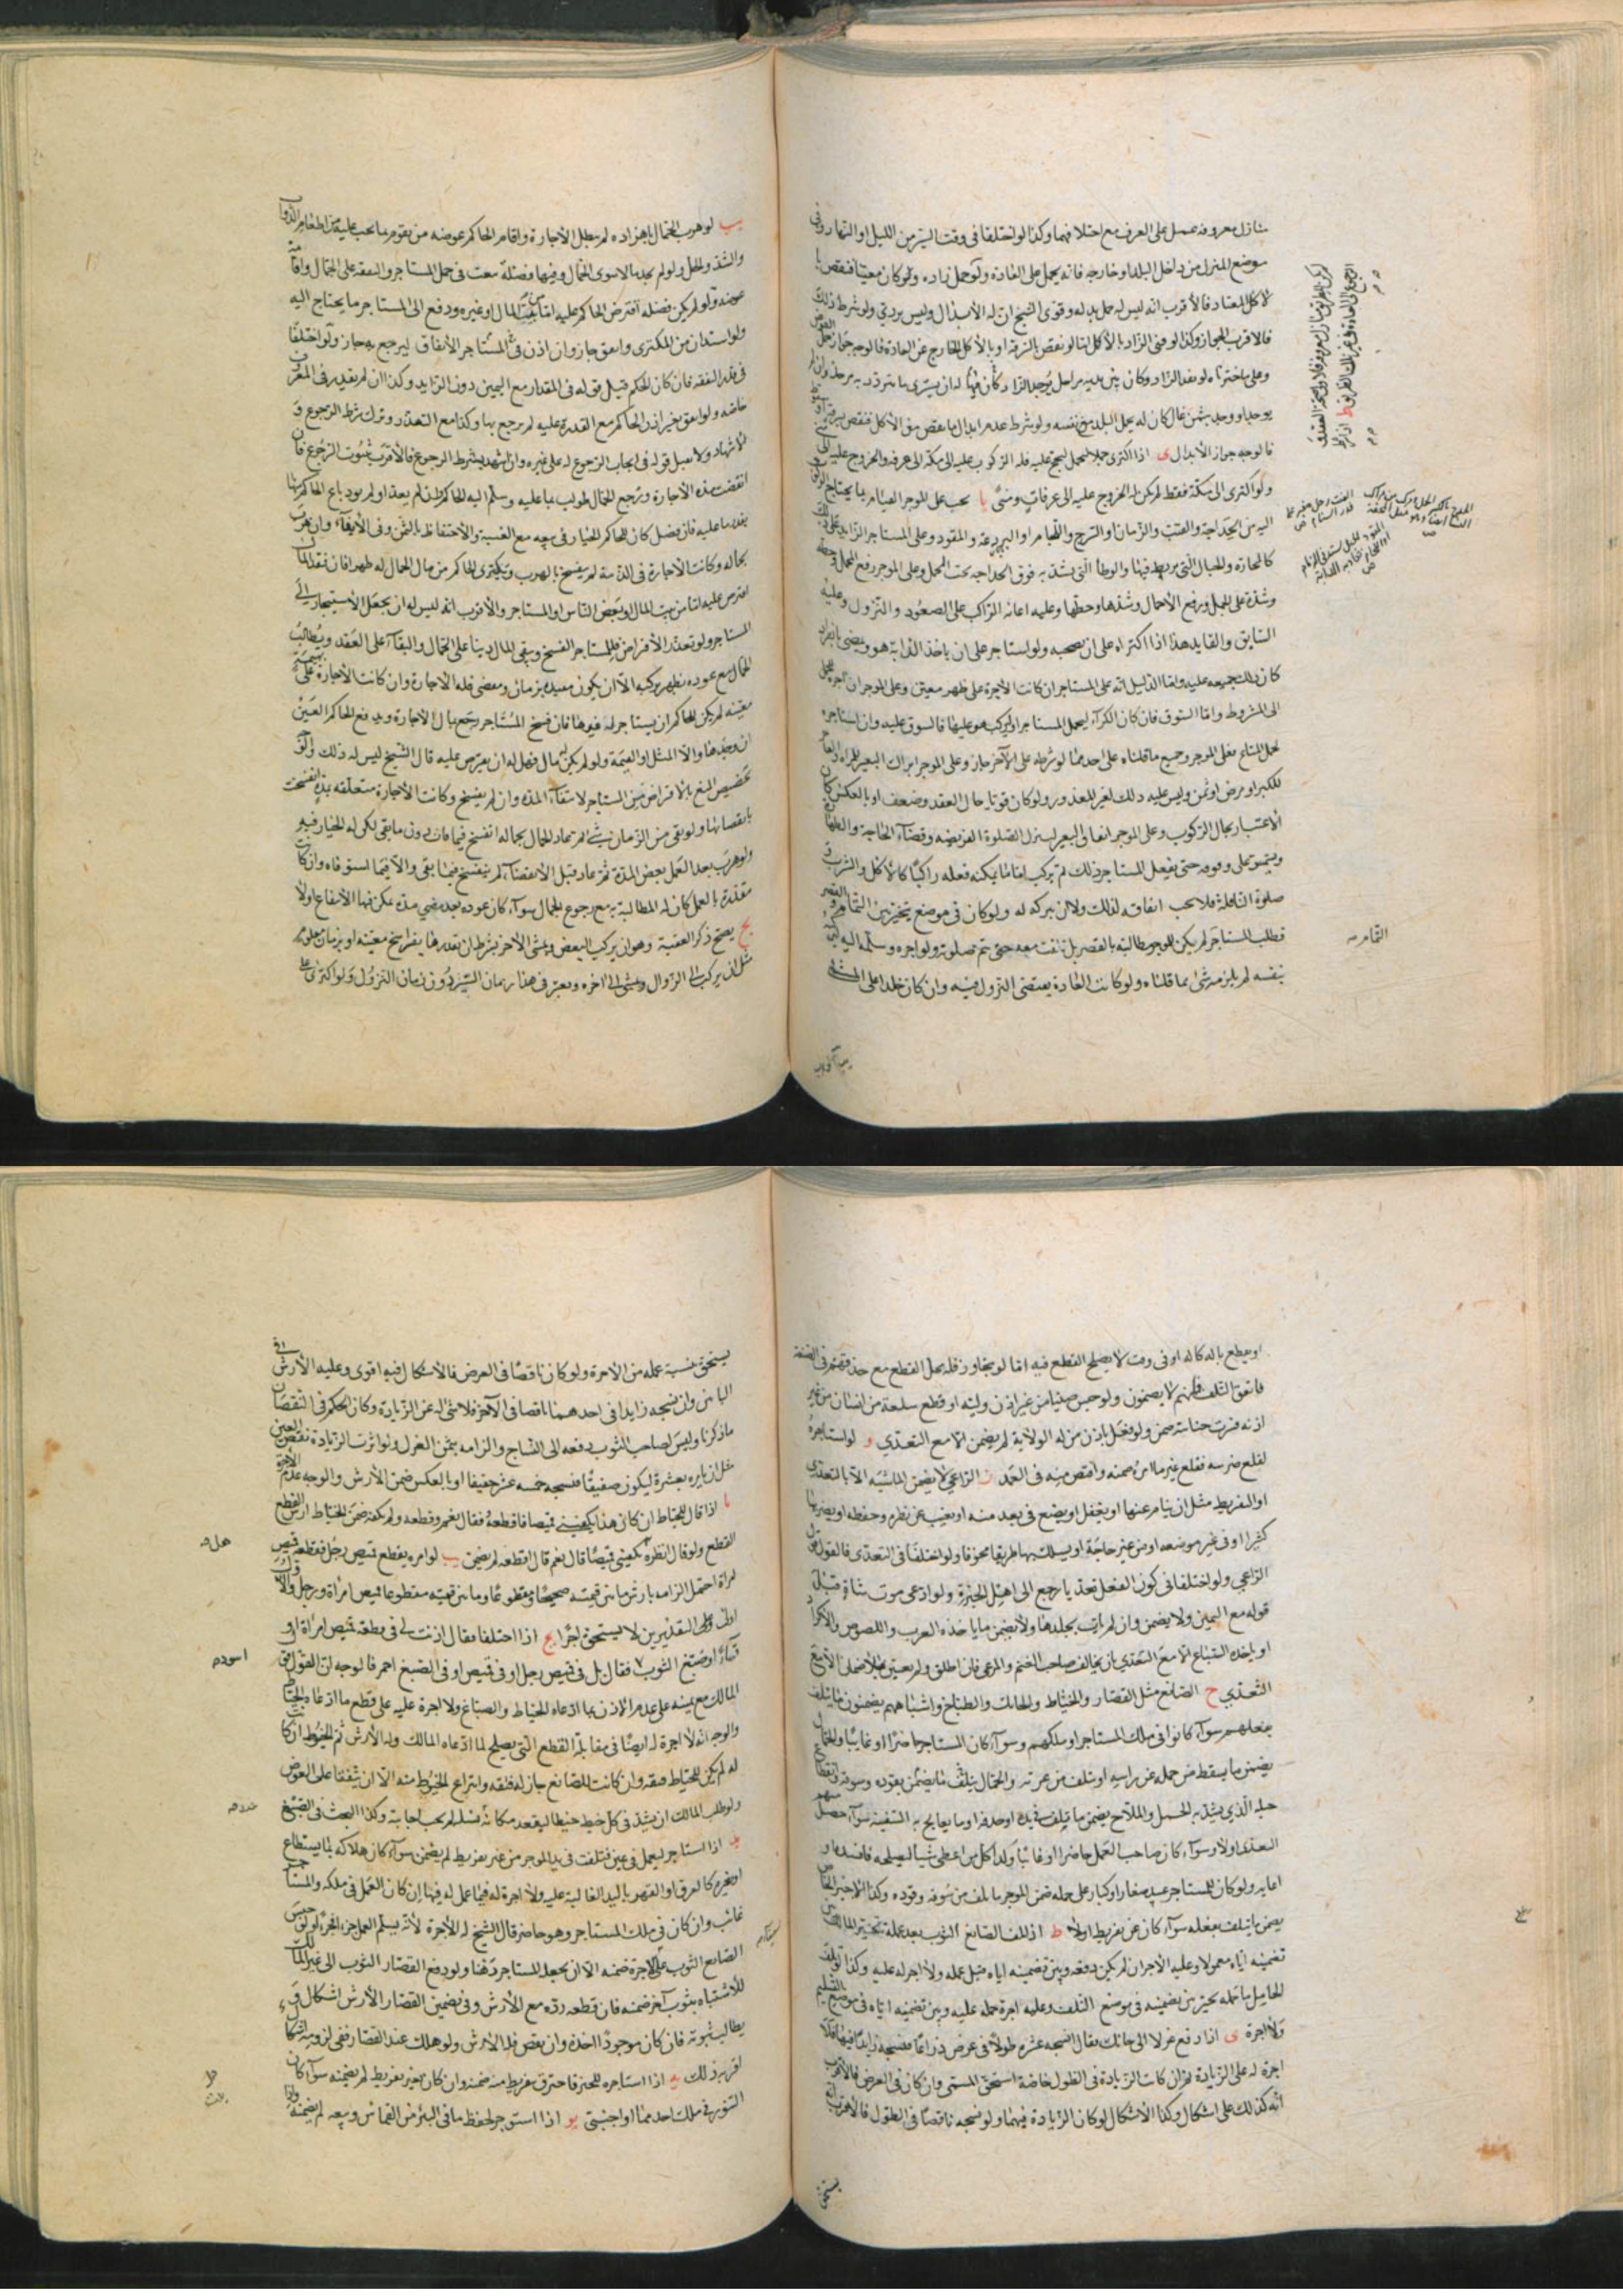 منازل معروفة عمل على العرف مع اختلافهما وكذا لو اختلفا في وقت السير من الليل او النهار وفى
موضع المنزل من داخل البلد او خارجه فانه يحمل على العادة ولو حمل زاده ولو كان معيّنا فنقص با
لاكل المعتاد فالاقرب انه ليس له حمل بدله وقوّى الشيخ ان له الابدال وليس بردي ولو شرط ذلك
فالاقرب الجواز وكذا لو فنى الزاد بالاكل امّا لو نقص بالسرقة او بالاكل الخارج عن العادة فالوجه جواز حمل العوض
وعلى ما اخترناه لو نفد الزاد وكان بين يديه مراحل يوجد الزاد
يوجد او وجد بثمن غال كان له
فالوجه جواز الابدال ى اذا اكترى جملا ليحج عليه فله الركوب عليه الى مكّة الى عرفة والخروج عليه الى
ولو اكترى الى مكّة فقط لم يكن له الخروج عليه الى عرفات ومنى يا يجب على الموجر القيام بما يحتاج
اليه من الحداجة والقتب والزمام والسرج واللجام او البردعة والمقود وعلى المستاجر الزايد على ذلك
كالمحارة والحبال التى يربط فيها والوطأ الّتى يشد به فوق الحداجة تحت المحمل وعلى الموجر رفع المحمل وحطه
وشدّه على الجمل ورفع الاحمال وشدّها وحطّها وعليه اعانة الراكب على الصعود والنزول وعليه
السايق والقايد هذا اذا اكتراه على ان يصحبه ولو استاجر على ان ياخذ الدابّة هو ويمضى بانفراده
كان ذلك جميعه عليه وامّا الدليل انه على المستاجر ان كانت الاجرة على ظهر معيّن وعلى الموجر ان
الى المشروط وامّا السوق فان كان الكراء ليحمل المستاجر او ليركب هو عليها فالسوق عليه وان استاجره
لحمل المتاع فعلى الموجر وجميع ما قلناه على احدهما لو شرطه على الآخر جاز وعلى الموجر ابراك البعير للمراة
للكبر او مرض او سمن وليس عليه ذلك لغير المعذور ولو كان قويّا حال العقد وضعف او بالعكس كان
الاعتبار بحال الركوب وعلى الموجر ايقاف البعير لينزل لصلوة الفريضة وقضاء الحاجة والطهارة
ويستمر على وقوفه حتى يفعل المستاجر ذلك ثم يركب امّا ما يمكنه فعله راكبًا كالاكل والشرب و
صلوة النافلة فلا يجب ايقافه لذلك ولا ان يبركه له ولو كان في موضع يتخير بين التمام والقصر
فطلب المستاجر لم يكن للموجر مطالبته بالقصر بل يقف معه حتى يتم صلوته ولو اجره وسلمه اليه ليمسكه
بنفسه لم يلزمه شئ مما قلناه ولو كانت العادة يقتضى النزول فيه وان كان جلدا على المشى
التمام صه
يب لو هرب الجمّال باجماله لم يبطل الاجارة واقام الحاكم عوضه من يقوم بما يجب عليه من اطعام الدواب
والشد والحل ولو لم يجد مالا سوى الجمال وفيها فضلة بيعت في حمل المستاجر والنفقة على الجمّال واقامة
عوضه ولو لم يكن فضلة اقترض الحاكم عليه امّا من بيت المال او غيره ودفع الى المستاجر ما يحتاج اليه
ولو استدان من المكترى وانفق جاز وان اذن فى المستاجر الانفاق ليرجع به جاز ولو اختلفا
فى قدر النفقة فان كان الحاكم قبل قوله في المقدار مع اليمين دون الزايد وكذا ان لم يقدر في المعروف
خاصّة ولو انفق بغير اذن الحاكم مع القدرة عليه لم يرجع بها وكذا مع التعذر وترك شرط الرجوع و
الاشهاد ولا يقبل قوله في ايجاب الرجوع له على غيره وان اشهد بشرط الرجوع فالاقرب ثبوت الرجوع فان
انقضت مدة الاجارة ورجع الجمال طولب بما عليه وسلّم اليه الحاكم وان لم يعد
بقدر ما عليه فان فضل كان للحاكم الخيار في بيعه مع الغيبة والاحتفاظ بالثمن وفى الابقاء وان هرب
بجماله وكانت الاجارة في الذمّة لم ينفسخ بالهرب ويكترى الحاكم من مال الجمّال له ظهرا فان فقد المال
اقترض عليه امّا من بيت المال او بعض الناس او المستاجر والاقرب انه ليس له ان يجعل الاستيجار الى
المستاجر ولو تعذّر الاقتراض فللمستاجر الفسخ ويبقى المال دينا على الجمّال والبقاء على العقد ويُطالبُ
الجمّال مع عوده بظهر يركبه الّا ان يكون معيّنه بزمان ومضى فله الاجارة وان كانت الاجارة على بهيمة
معيّنة لم يكن للحاكم ان يستاجر له غيرها فان فسخ المستاجر رجع بمال الاجارة ويدفع الحاكم العين
ان وجدها والّا المثل او القيمة ولو لم يكن له مال فهل له ان يقترض عليه قال الشيخ ليس له ذلك والوجه
تخصيص المنع بالاقتراض من المستاجر لا بيقاء المدّة وان لم يفسخ وكانت الاجارة متعلقة بمدّة انفسخت
بانقضائها ولو بقى من الزمان شئ ثم عاد الجمّال بجماله انفسخ فيما فات دون ما بقى لكن له الخيار فيه
ولو هرب بعد العمل بعض المدّة ثم عاد قبل الانقضاء لم ينفسخ فيما بقى والّا فيما استوفاه وان كانت
مقدّرة بالعمل كان له المطالبة به مع رجوع الجمّال سواء كان عوده بعد مضى مدة يمكن فيها الانتفاع اولا
يج يصحّ ذكر العقبة وهو ان يركب البعض ويمشى الآخر بشرط ان يقدرها بفراسخ معيّنة او بزمان معلوم
مثل ان يركب الى الزوال ويمشى الى آخره ويعتبر في هذا زمان السير دون زمان النزول ولو اكترى
او يقطع بآلة كالّة او فى وقت لا يصلح القطع فيه امّا لو تجاوز فله محل القطع مع حذقهم في الصنعة
فاتفق التلف فانهم لا يضمنون ولو حبس صبيّا من غير اذن وليّه او قطع سلعة من انسان من غير
اذنه فسرت جنايته ضمن ولو فعل باذن من له الولاية لم يضمن الّا مع التعدّى و لو استاجره
لقلع ضرسه فقلع غير ما امر ضمنه واقتص منه في العمد ز الراعي لا يضمن الماشية الّا بالتعدّى
او التفريط مثل ان ينام عنها او يغفل او يضع في بعد منه او تغيب عن نظره وحفظه او يضربها
كثيرا او في غير موضعه او من غير حاجة او يسلك بها طريقا مخوفا ولو اختلفا في التعدّى فالقول قول
الراعي ولو اختلفا في كون الفعل تعدّيا رجع الى اهل الخبرة ولو ادّعى موت شاة قبل
قوله مع اليمين ولا يضمن وان لم يات بجلدها ولا يضمن ما ياخذه العرب واللصوص والاكراد
او ياخذه السّباع الّا مع التعدّى بان يخالف صاحب الغنم والمرعى فان اطلق ولم يعيّن
التعدّى ح الصانع مثل القصّار والخيّاط والحائك والطباخ واشباههم يضمنون ما يتلف
بفعلهم سواء كانوا في ملك المستاجر او ملكهم وسواء كان المستاجر حاضرًا او غايبًا والحمّال
يضمن ما يسقط من حمله عن راسه او يتلف من عثرته والجمّال يتلف ما يضمن بقوده وسوقه وانقطاع
حبله الّذي يشدّ به الحمل والملّاح يضمن ما يتلف في يده او جذفه او ما يعالج به السّفينة سواء حصل
التعدّى اولا وسواء كان صاحب العمل حاضرا او غائبًا وكذا كل من اعطى شيئا ليصلحه فافسده او
اعابه ولو كان المستاجر عبيد صغارا وكبار على حمله ضمن الموجر ما تلف من سوقه وقوده وكذا الاجير الخاص
يضمن ما يتلف بفعله سواء كان عن تفريط اولا ط اذا تلف الصانع الثوب بعد عمله تخيّر المالك بين
تضمينه ايّاه معمولا وعليه الاجر ان لم يكن دفعه وبين تضمينه ايّاه قبل عمله ولا اجر له عليه وكذا لو تلف
الحامل ما حمله تخيّر بين تضمينه في موضع التلف وعليه اجرة حمله عليه وبين تضمينه ايّاه فى موضع التسليم
ولا اجرة ى اذا دفع غزلا الى حائك فقال انسجه عشرة طولًا في عرض ذراع فنسجه زايدا فيهما فلا
اجرة له على الزيادة ثم ان كانت الزيادة في الطول خاصّة استحق المسمّى وان كان في العرض فالاقرب
انّه كذلك على اشكال وكذا الاشكال لو كان الزيادة فيهما ولو نسجه ناقصًا في الطول فالاقرب انه
يستحق
يستحق بنسبة عمله من الاجرة ولو كان ناقصًا في العرض فالاشكال فيه اقوى وعليه الارش في
البابين وان نسجه زايدا في احدهما ناقصا في الآخر فلا شئ له عن الزيادة وكان الحكم في النقصان
ما ذكرنا وليس لصاحب الثوب دفعه الى النسّاج والزامه بثمن الغزل ولو اثرت الزيادة نقصا في العين
مثل ان يامره بعشرة ليكون صفيقًا فنسجه خمسه عشر خفيفا او بالعكس ضمن الارش والوجه عدم الاجرة
يا اذا قال للخيّاط ان كان هذا يكفينى قميصا فاقطعه فقال نعم وقطعه ولم يكفه ضمن الخيّاط ارش القطع
القطع ولو قال انظره يكفينى قميصًا قال نعم قال اقطعه لم يضمن يب لو امره بقطع قميص رجل فقطعه قميص
امراة احتمل الزامه بارش ما بين قيمته صحيحًا ومقطوعًا وما بين قيمته مقطوعا قميص امراة ورجل والاوّل
اولى وعلى التقديرين لا يستحق اجرًا يج اذا اختلفا فقال اذنت لى في قطعه قميص امراة او
قباء او صبغ الثوب فقال بل في قميص رجل او في قميص او في الصبغ احمر فالوجه انّ القول قول
المالك مع يمينه على عدم الاذن بما ادّعاه الخياط والصبّاغ ولا اجرة عليه على قطع ما ادّعاه الخيّاط
والوجه انّه لا اجرة له ايضًا في مقابلة القطع التى يصلح لما ادّعاه المالك وله الارش ثم الخيوط ان كانت
له لم يكن للخيّاط فتقه وان كانت للصانع جاز له فتقه وانتزاع الخيوط منه الّا ان يتّفقا على العوض
ولو طلب المالك ان يشدّ في كل خيط خيطا ليقعد مكانه لم يجب اجابته وكذا البحث في الصّبغ
يد اذا استاجر ليعمل في عين فتلفت في يد الموجر من غير تفريط لم يضمن سواء كان هلاكه بما يستطاع
او بغيره كالغرق او القهر باليد الغالبة عليه ولا اجرة له فيما عمل له فيها ان كان العمل في ملكه والمستاجر
غائب وان كان في ملك المستاجر وهو حاضر قال الشيخ له الاجرة لانّه يسلّم العمل جزءا فجزءا ولو حبس
الصانع الثوب على الاجرة ضمنه الّا ان يجعله المستاجر رهنا ولو دفع القصّار الثوب الى غير المالك
للاشتباه بثوب آخر ضمنه فان قطعه ردّه مع الارش وفى تضمين القصّار الارش اشكال و
يطالب بثوبه فان كان موجودًا اخذه وان نقص فله الارش ولو هلك عند القصّار ففى لزومه اشكال
اقربه ذلك يه اذا استاجره للخبز فاحترق بتفريط منه ضمنه وان كان بغير تفريط لم يضمنه سواء كان
التنّور في ملك احدهما او اجنبى يو اذا استوجر لحفظ ما في البئر من القماش وبيعه لم يضمنه واذا